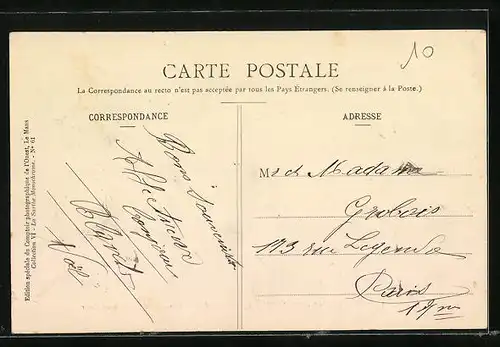 10
CARTE POSTALE
La Correspondance au recto n'est pas acceptée par tous les Pays Étrangers. (Se renseigner à la Poste.)
CORRESPONDANCE
Bons Souvenirs
ADRESSE
M et Madame
Grobois
113 rue Legendre
Paris
17me
Edition spéciale du Comptoir photographique de l'Ouest, Le Mans
Collection VI - La Sarthe Monumentale. - N° 61